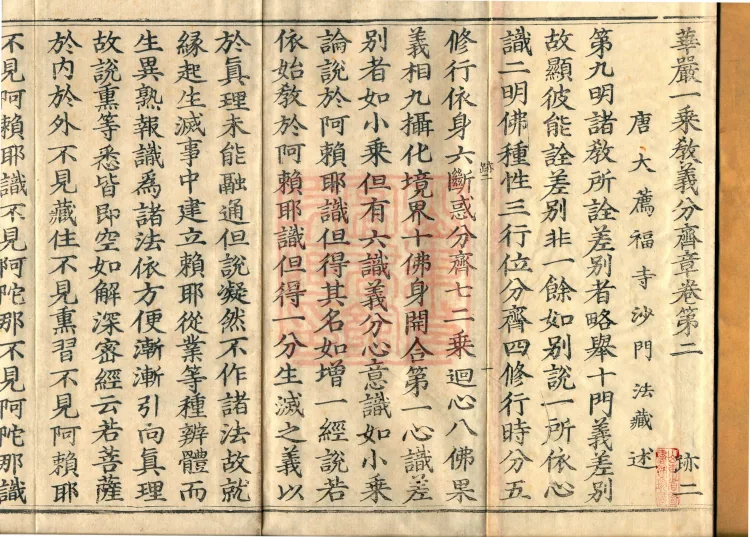 華嚴一乗教義分齊章卷第二 跡二
唐大薦福寺沙門法藏述
第九明諸教所詮差別者略舉十門義差別
故顯彼能詮差別非一餘如別說一所依心
識二明佛種性三行位分齊四修行時分五
修行依身六斷惑分齊七二乗迴心八佛果
跡二 一
義相九攝化境界十佛身開合第一心識差
別者如小乗但有六識義分心意識如小乗
論說於阿賴耶識但得其名如增一經說若
依始教於阿賴耶識但得一分生滅之義以
於眞理未能融通但說凝然不作諸法故就
緣起生滅事中建立賴耶從業等種辨體而
生異熟報識爲諸法依方便漸漸引向眞理
故說熏等悉皆即空如解深密經云若菩薩
於內於外不見藏住不見熏習不見阿賴耶
不見阿賴耶識不見阿陀那不見阿陀那識